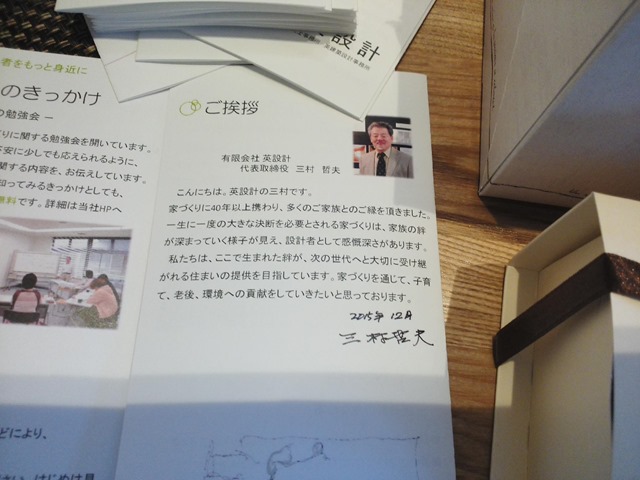 設計
者をもっと身近に
のきっかけ
の勉強会 ー
りに関する勉強会を開いています。
不安に少しでも応えられるように、
関する内容を、お伝えしています。
知ってみるきっかけとしても、
無料です。詳細は当社HPへ
どにより、
ご挨拶
有限会社 英設計
代表取締役 三村 哲夫
こんにちは。英設計の三村です。
家づくりに40年以上携わり、多くのご家族とのご縁を頂きました。
一生に一度の大きな決断を必要とされる家づくりは、家族の絆
が深まっていく様子が見え、設計者として感慨深さがあります。
私たちは、ここで生まれた絆が、次の世代へと大切に受け継
がれる住まいの提供を目指しています。家づくりを通じて、子育
て、老後、環境への貢献をしていきたいと思っております。
2015年 12月
三村哲夫